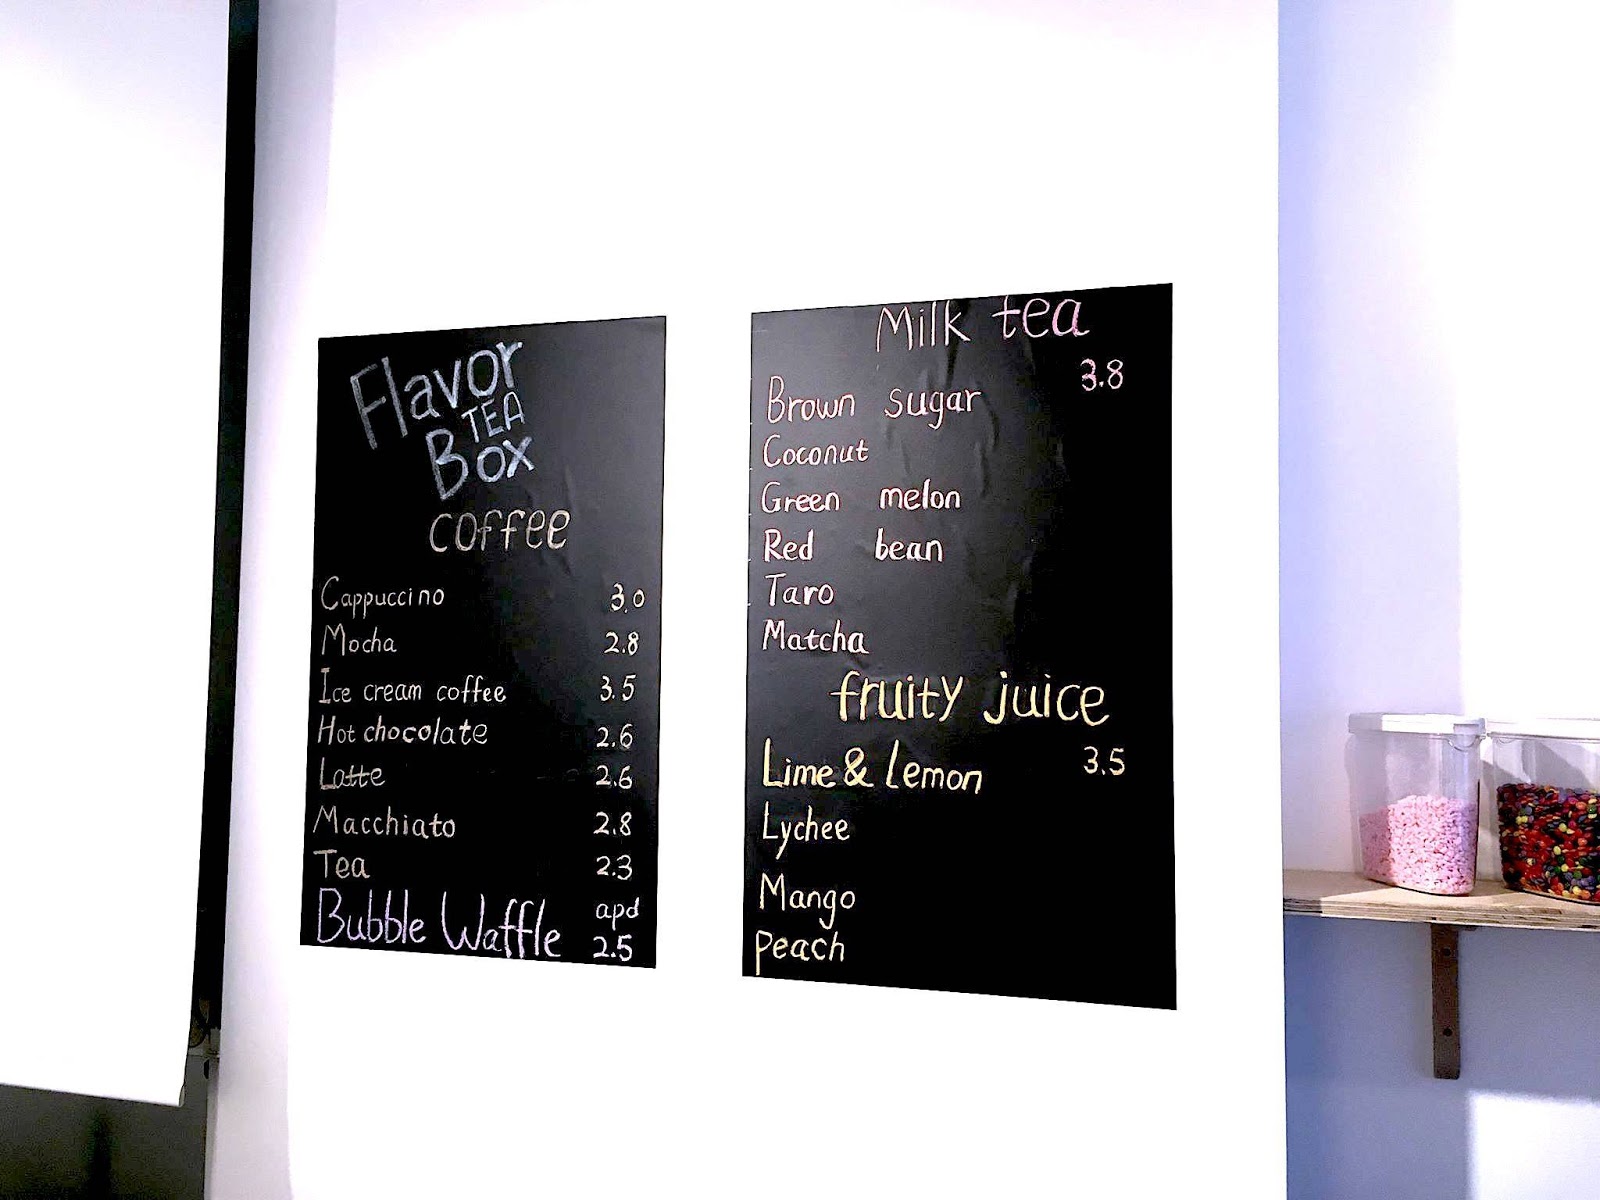 Flavor
TEA
Box
coffee
Cappuccino 3.0
Mocha 2.8
Ice cream coffee 3.5
Hot chocolate 2.6
Latte 2.6
Macchiato 2.8
Tea 2.3
Bubble Waffle apd 2.5
Milk tea
3.8
Brown sugar
Coconut
Green melon
Red bean
Taro
Matcha
fruity juice
Lime & Lemon 3.5
Lychee
Mango
Peach